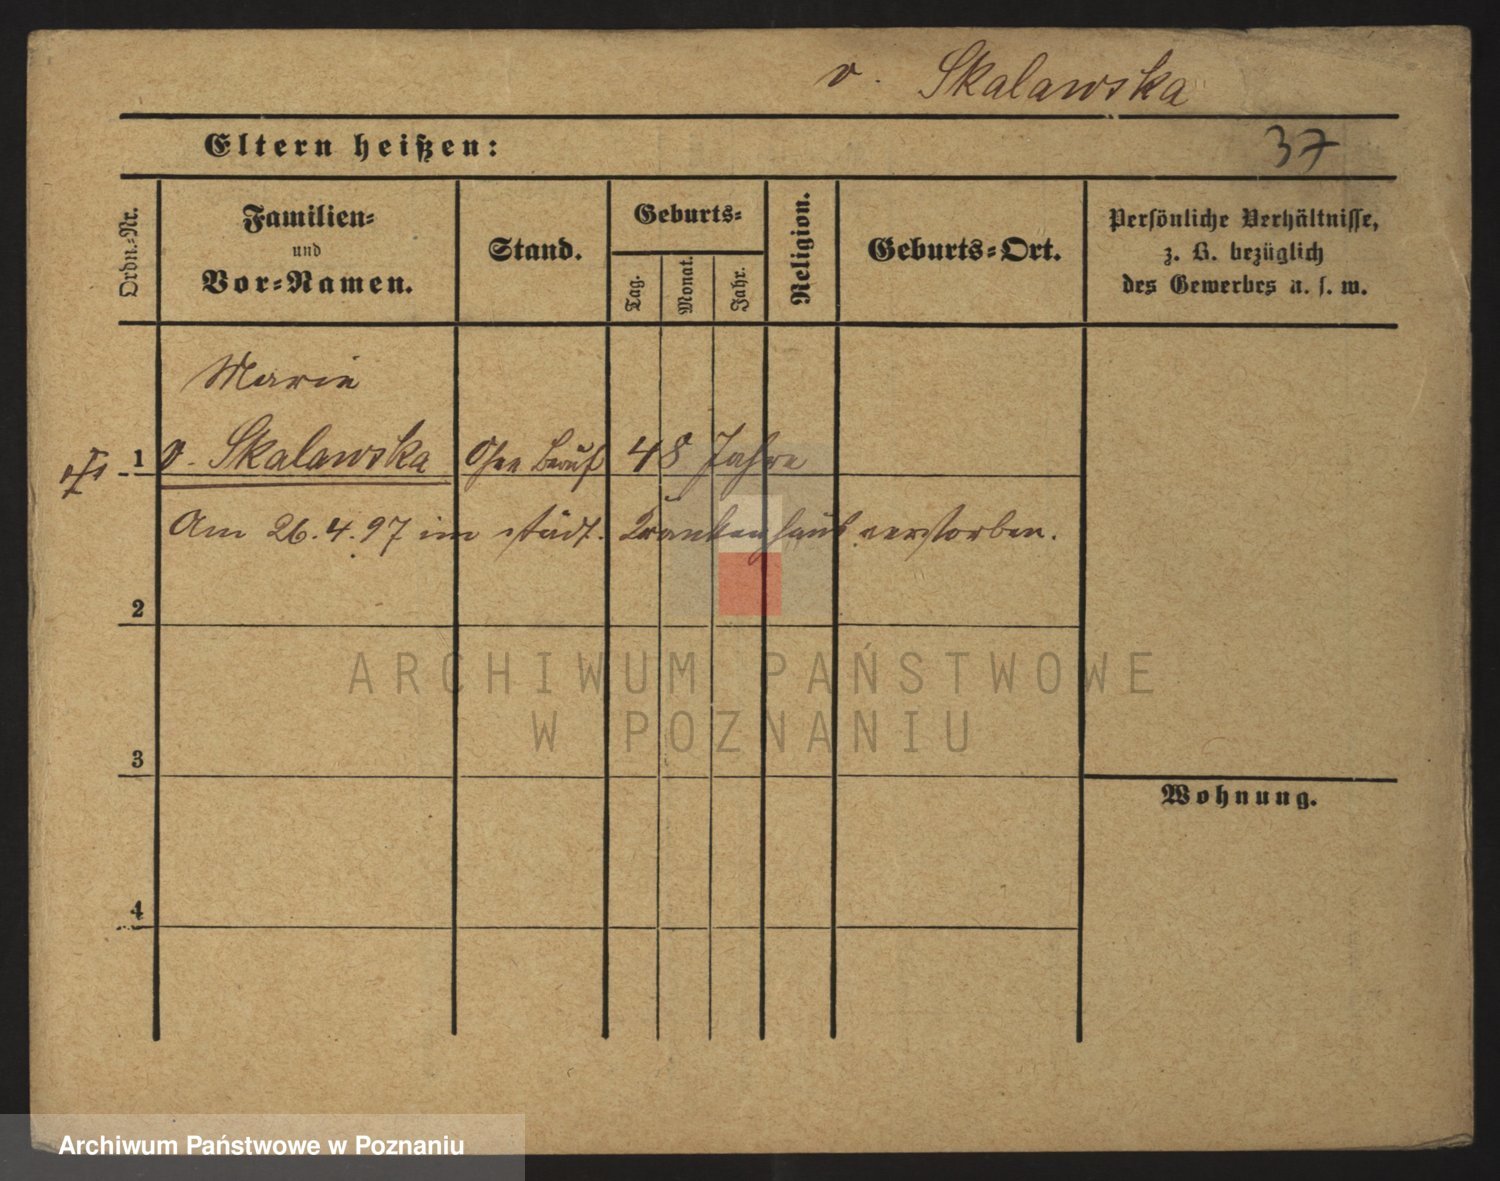 v. Skalawska
Eltern heißen:
37
Ordn.-Nr.
Familien-
und
Vor-Namen.
Stand.
Geburts-
Tag.
Monat.
Jahr.
Religion.
Geburts-Ort.
Persönliche Verhältnisse,
z. B. bezüglich
des Gewerbes u. s. w.
Marie
1 v. Skalawska Ohne Beruf 48 Jahre
Am 26.4.97 im städt. Krankenhaus verstorben.
2
ARCHIWUM PAŃSTWOWE
W POZNANIU
3
Wohnung.
4
Archiwum Państwowe w Poznaniu